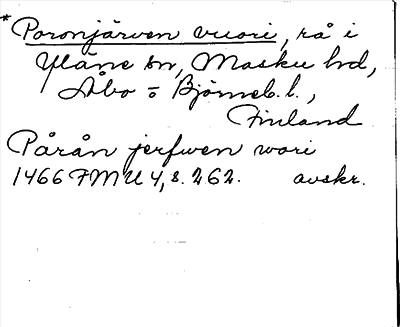 *Poronjärven vuori, rå i
Yläne sn, Masku hd,
Åbo = Björneb. l.,
Finland
Pårån jerfwen wori
1466 FMU 4, s. 262. avskr.